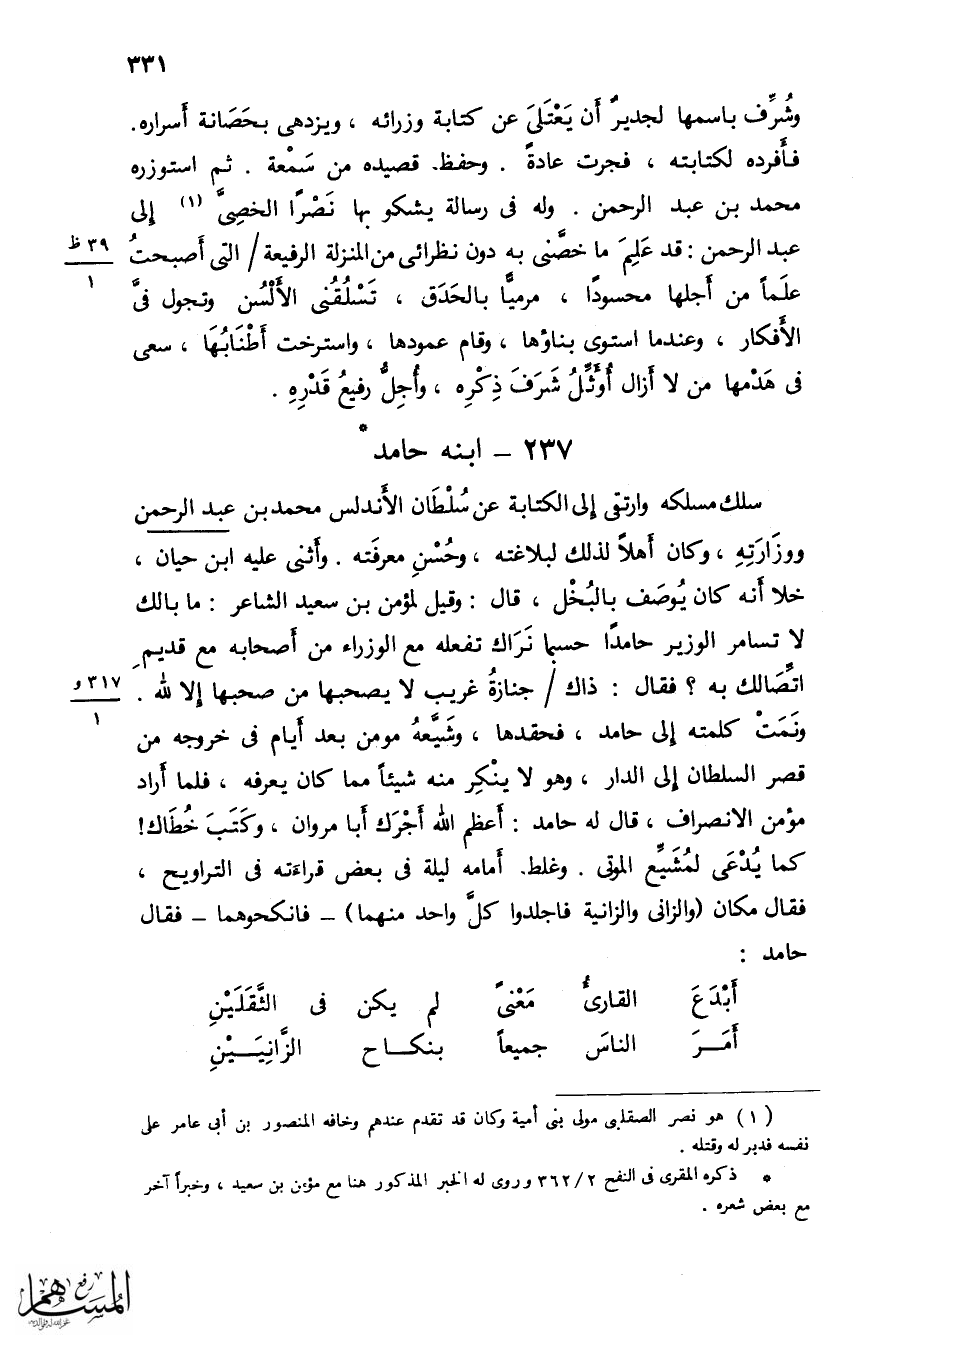 ٣٣١
وشُرِّف باسمها لجديرٌ أن يَعْتَلىَ عن كتابة وزرائه ، ويزدهى بحَصَانة أسراره.
فأفرده لكتابته ، فجرت عادةً . وحفظ قصيده من سَمْعة . ثم استوزره
محمد بن عبد الرحمن . وله فى رسالة يشكو بها نَصْرًا الخصِىَّ (١) إلى
عبد الرحمن : قد عَلِمَ ما خصَّنى به دون نظرائى من المنزلة الرفيعة / التى أصبحتُ
٣٩ ظ
١
علَماً من أجلها محسودًا ، مرميًّا بالحَدَق ، تَسْلُقُنى الألْسُن وتجول فىَّ
الأفكار ، وعندما استوى بناؤها ، وقام عمودها ، واسترخت أطْنابُهَا ، سعى
فى هَدْمها من لا أزال أُوَثِّلُ شَرَفَ ذِكْرِه ، وأُجِلُّ رفيعُ قَدْرِهِ .
٢٣٧ – ابنه حامد *
سلك مسلكه وارتقى إلى الكتابة عن سُلْطَان الأندلس محمد بن عبد الرحمن
ووزَارَتِهِ ، وكان أهلاً لذلك لبلاغته ، وحُسْنِ معرفَته . وأثنى عليه ابن حيان ،
خلا أنه كان يُوصَف بالبُخْل ، قال : وقيل لمؤمن بن سعيد الشاعر : ما بالك
لا تسامر الوزير حامدًا حسبما نَرَاك تفعله مع الوزراء من أصحابه مع قديم
اتِّصَالك به ؟ فقال : ذاك / جنازةُ غريب لا يصحبها من صحبها إلا لله .
٣١٧ و
١
ونَمَتْ كلمته إلى حامد ، فحقدها ، وشَيَّعهُ مومن بعد أيام فى خروجه من
قصر السلطان إلى الدار ، وهو لا ينْكِر منه شيئاً مما كان يعرفه ، فلما أراد
مؤمن الانصراف ، قال له حامد : أعظم الله أجْرَك أبا مروان ، وكَتَبَ خُطَاك!
كما يُدْعَى لمُشَيِّع الموتى . وغلط أمامه ليلة فى بعض قراءته فى التراويح ،
فقال مكان (والزانى والزانية فاجلدوا كلَّ واحد منهما) – فانكحوهما – فقال
حامد :
أبْدَعَ القارئُ مَعْنىً لم يكن فى الثَّقَلَيْنِ
أمَــرَ الناسَ جميعاً بنكــاح الزَّانِيَــيْنِ
(١) هو نصر الصقلبى مولى بنى أمية وكان قد تقدم عندهم وخافه المنصور بن أبى عامر على
نفسه فدبر له وقتله .
* ذكره المقرى فى النفح ٣٦٢/٢ وروى له الخبر المذكور هنا مع مؤمن بن سعيد ، وخبراً آخر
مع بعض شعره .
رفع
المساهم